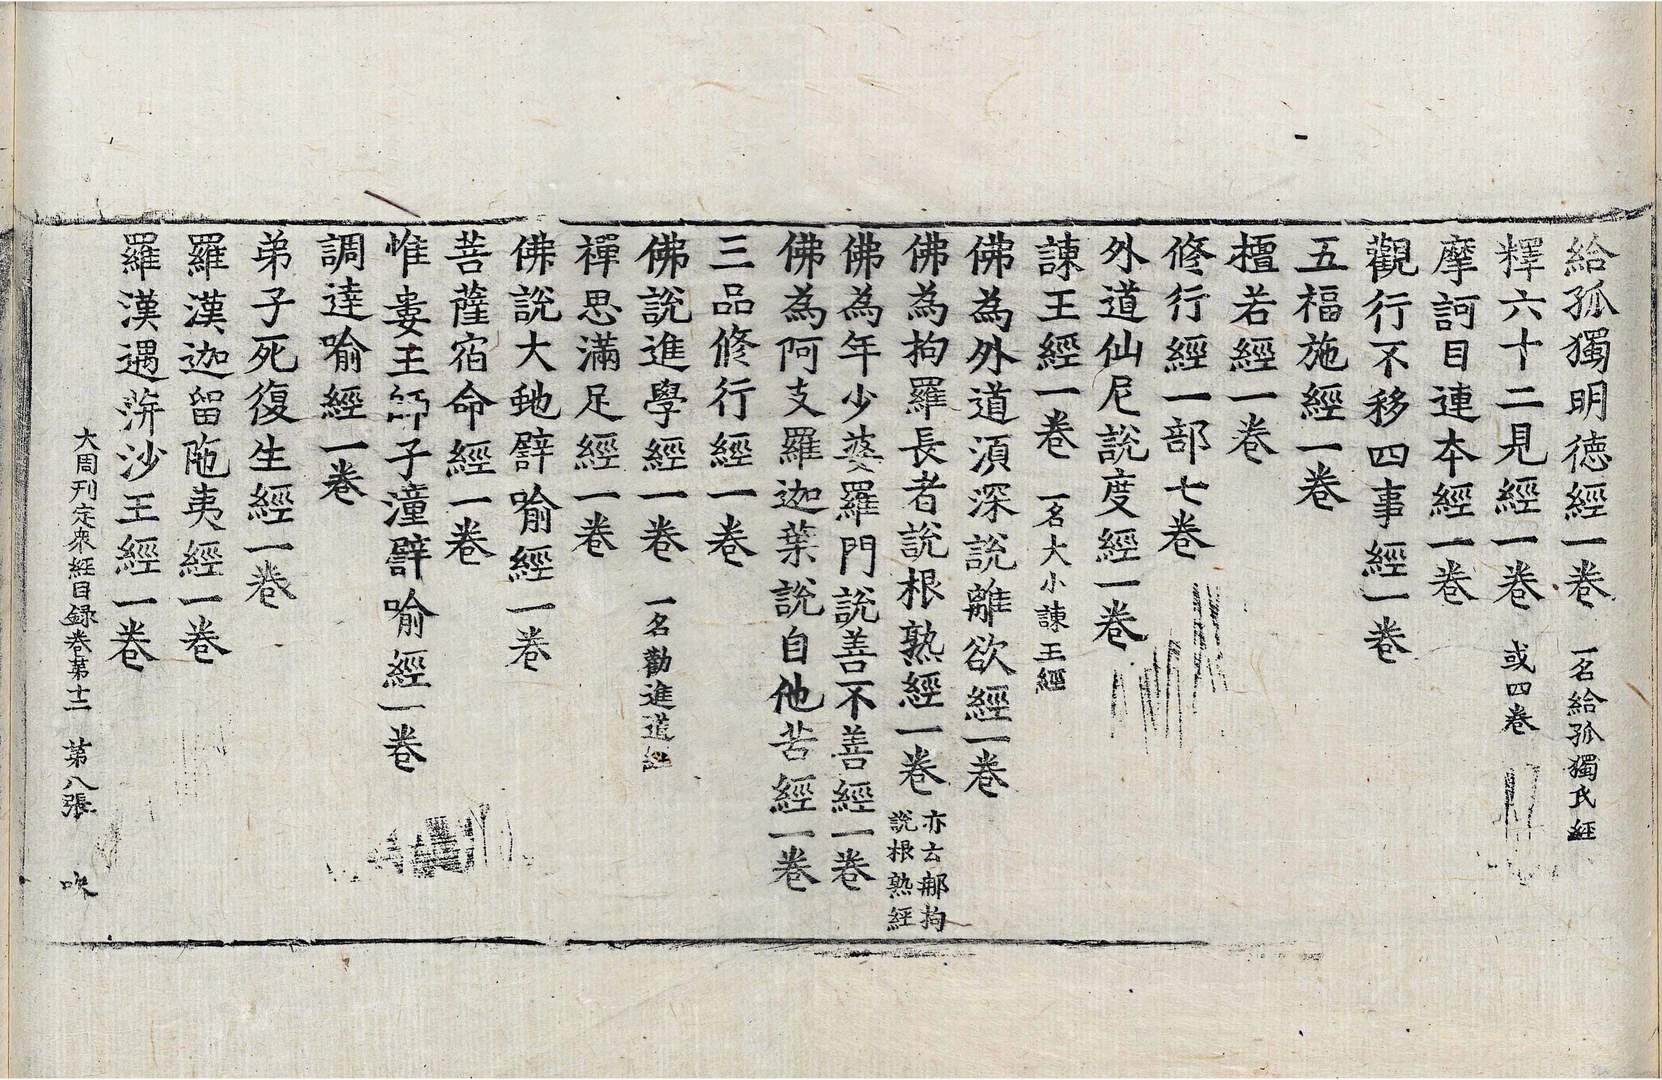 給孤獨明德經一卷 一名給孤獨氏經
釋六十二見經一卷 或四卷
摩訶目連本經一卷
觀行不移四事經一卷
五福施經一卷
檀若經一卷
修行經一部七卷
外道仙尼說度經一卷
諫王經一卷 一名大小諫王經
佛為外道須深說離欲經一卷
佛為拘羅長者說根熟經一卷 亦云郍拘說根熟經
佛為年少婆羅門說善不善經一卷
佛為阿支羅迦葉說自他苦經一卷
三品修行經一卷
佛說進學經一卷 一名勸進道經
禪思滿足經一卷
佛說大虵譬喻經一卷
菩薩宿命經一卷
惟婁王師子湩譬喻經一卷
調達喻經一卷
弟子死復生經一卷
羅漢迦留陁夷經一卷
羅漢遇洴沙王經一卷
大周刊定衆經目録卷第十二 第八張